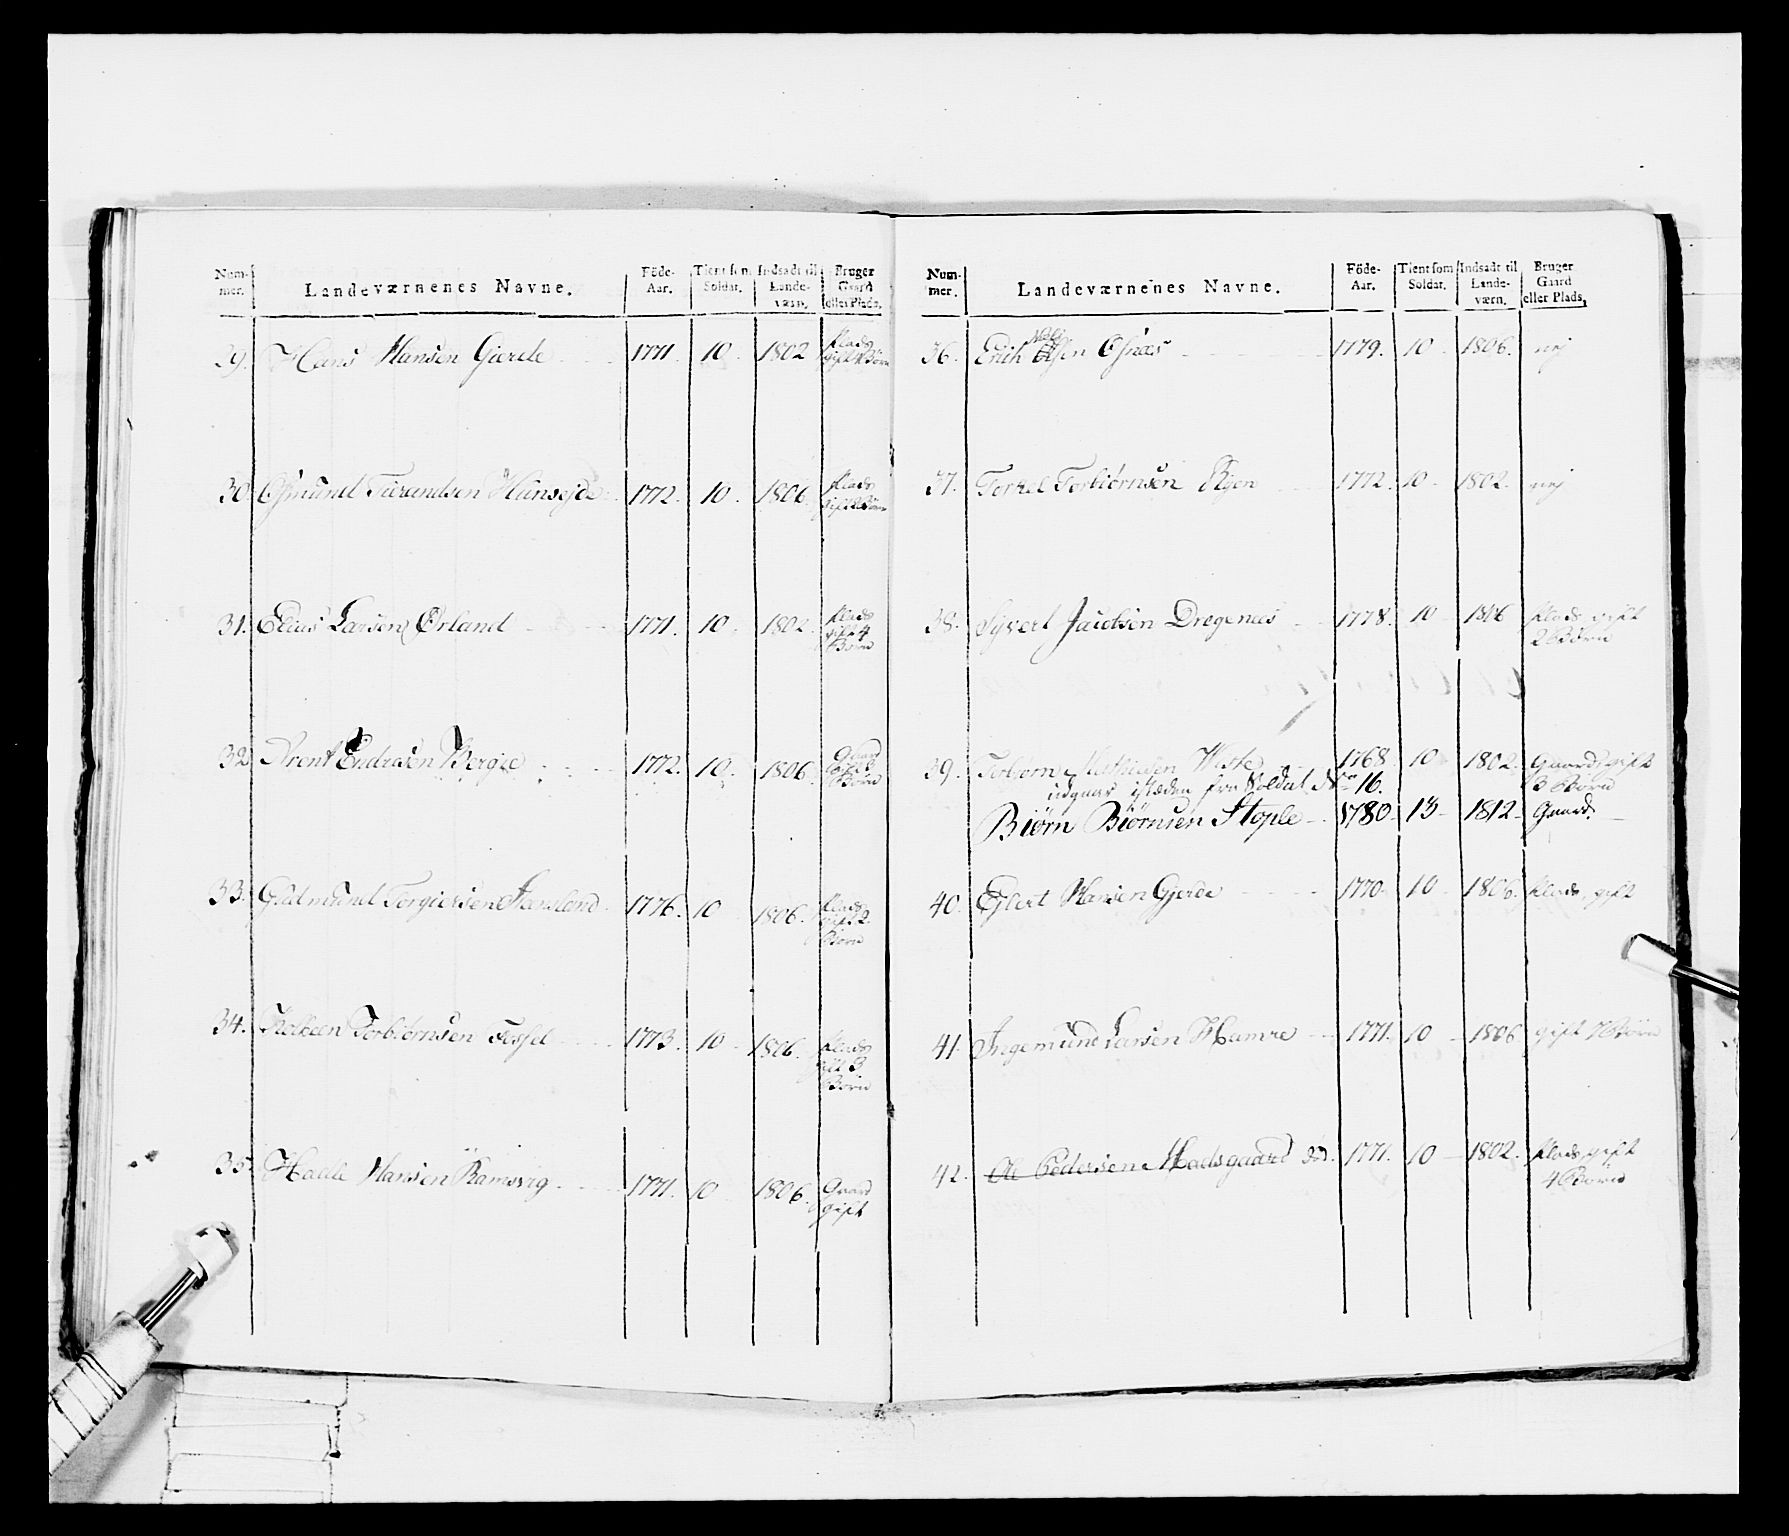 Num-mer. Landeværnenes Navne. Föde-Aar. Tient som Soldat. Indsadt til Lande-værn. Bruger Gaard eller Plads.
29. Hans Hansen Gierde 1771. 10. 1802 Plads gift 4 Börn
30. Osmund Tierandsen Hunsejde 1772. 10. 1806. Plads gift 2 Börn
31. Elias Larsen Ørland 1771. 10. 1802. Plads
gift 4
Börn
32. Arent Endresen Berge 1772. 10. 1806. Gaard
gift 6
Börn
33. Gudmund Torgiersen Steensland 1776. 10 1806. Plads
gift 2
Börn
34. Kolbeen Torbiørnsen Fossel 1773. 10 1806. Plads
gift 3
Börn
35. Halle Hansen Ramsvig 1771. 10 1806. Gaard
gift
Num-mer. Landeværnenes Navne. Föde-Aar. Tient som Soldat. Indsadt til Lande-værn. Bruger Gaard eller Plads.
36. Erich Olsen Osnæs 1779. 10 1806. nej
37. Torkel Torbiørnsen Ryen 1772. 10 1802. nej
38. Syvert Jacobsen Dragenæs 1778. 10 1806 Plads, gift
2 Börn
39. Torbørn Mathiesen Weste 1768 10 1802. Gaard, gift
udgaar isteden fra Soldat No 16. 3 Börn
Biørn Biørnsen Stople 1780 13 1812 Gaard.
40. Eylert Hansen Gjerde 1770 10 1806. Plads, gift
41. Ingemund Larsen Hamre 1771. 10 1806 gift 7 Börn
42. Ole Pedersen Madsgaard död. 1771. 10 1802. Plads, gift
4 Börn